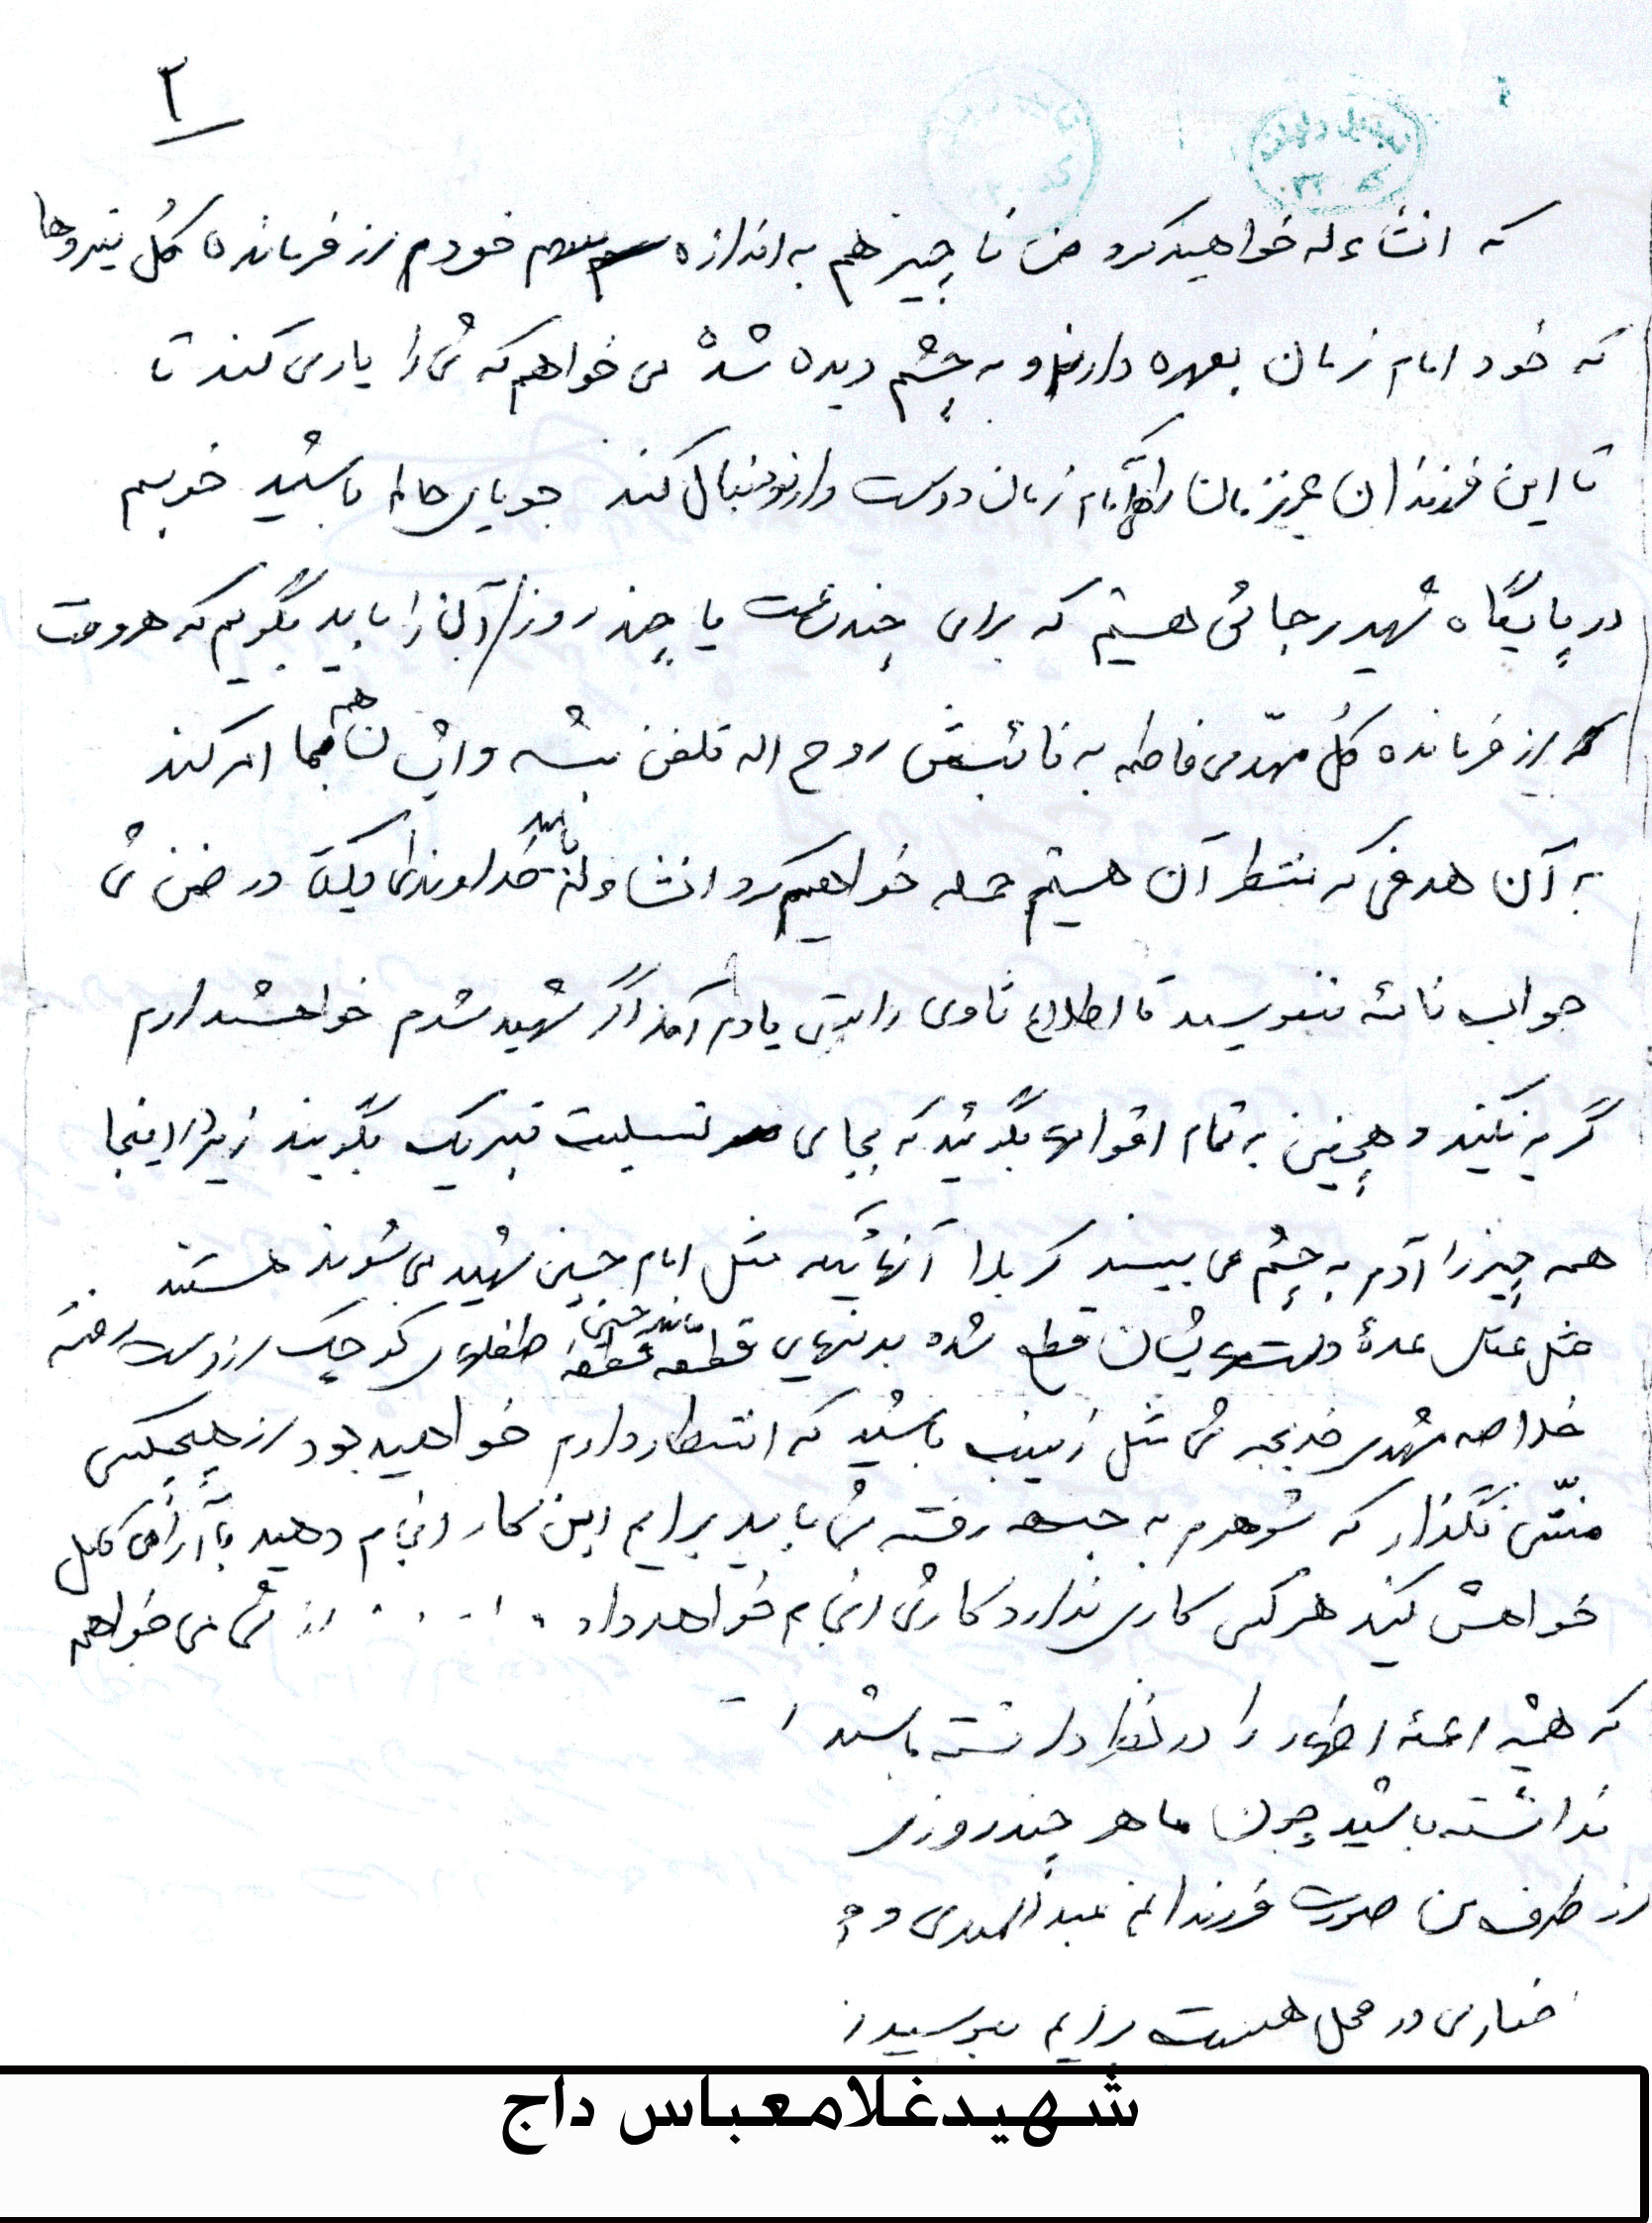 ۲
که انشاءله خواهید کرد من ناچیز هم به اندازه سهم خودم از فرمانده کُل نیروها
که خود امام زمان بعهده دارند و به چشم دیده شده می خواهم که شما را یاری کند تا
تا این فرزندان عزیزمان را امام زمان دوست دارد دنبال کند جویای حالم باشید خوبیم
در پایگاه شهید رجائی هستیم که برای چند ساعت یا چند روز / آن را باید بگویم که هر وقت
از فرمانده کُل مهدی فاطمه به نائبش روح اله تلفن بشه و ایشان هم بما امر کند
به آن هدفی که منتظر آن هستیم حمله خواهیم کرد انشاءله خداوند در ضمن شما
جواب نامه ننویسید تا اطلاع ثانوی راستی یادم آمد اگر شهید شدم خواهشدارم
گریه نکنید و همچنین به تمام اقوام بگوئید که بجای تسلیت تبریک بگویند زیرا اینجا
همه چیز را آدم به چشم می بیند کربلا آنهائیکه مثل امام حسین شهید می شوند هستند
مثل عباس عدۀ دستهایشان قطع شده بدنهای قطعه قطعه مانند طفلهای کوچک از دست رفته
خلاصه خدیجه شما مثل زینب باشید که انتظار دارم خواهید بود از هیچکس
منّتی نگذار که شوهرم به جبهه رفته شما باید برایم این کار انجام دهید با آرامی کامل
خواهش کنید هر کس کاری ندارد کار شما انجام خواهد داد ..... از شما می خواهم
که همیشه ائمۀ اطهار را در نظر داشته باشید
نداشته باشید چون ما هر چند روزی
از طرف من صورت فرزندانم عبدالمهدی و
در محل هست برایم بنویسید
شهید غلامعباس داج